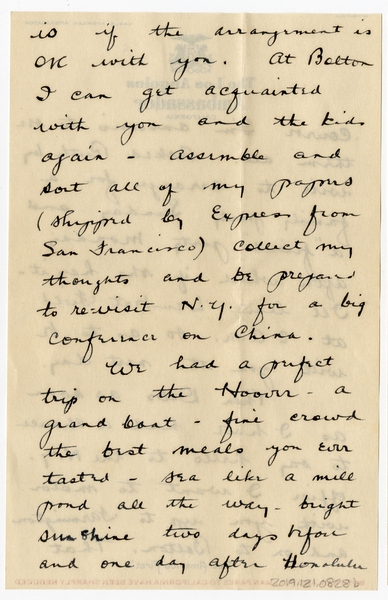 is if the arrangement is
OK with you. At Belton
I can get acquainted
with you and the kids
again - assemble and
sort all of my papers
(shipped by Express from
San Francisco) collect my
thoughts and be prepared
to re-visit N.Y. for a big
conference on China.
We had a perfect
trip on the Hoover - a
grand boat - fine crowd
the best meals you ever
tasted - sea like a mill
pond all the way - bright
sunshine two days before
and one day after Honolulu
2019.121.0828b